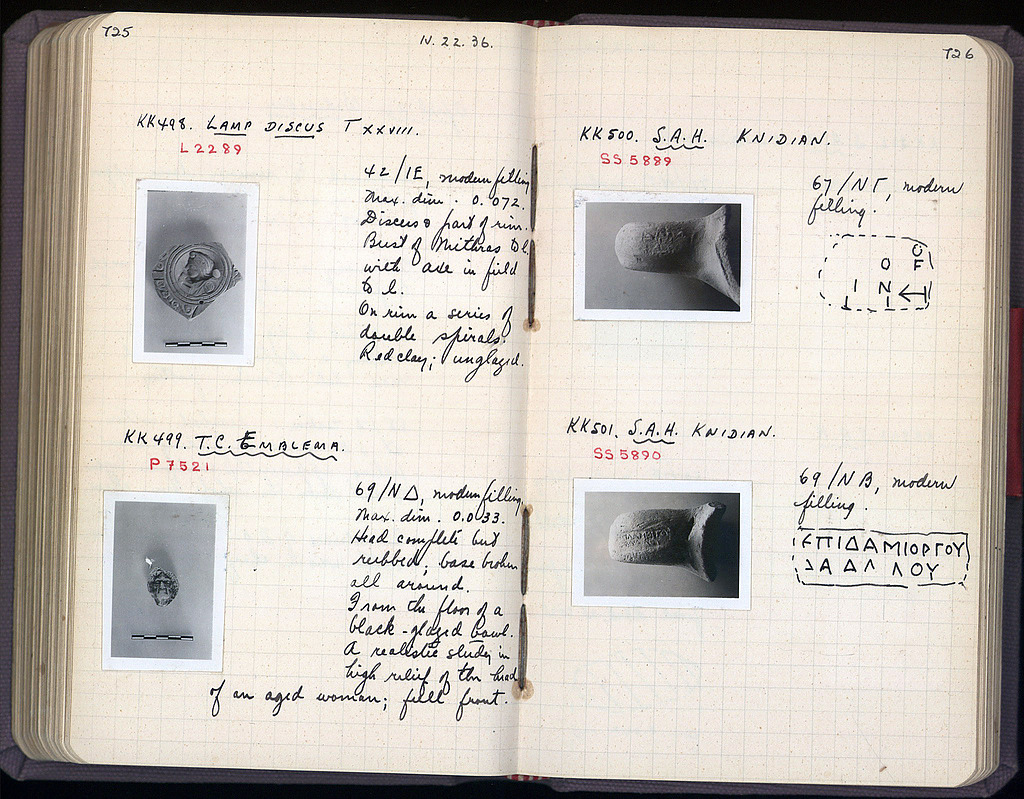 725
IV. 22. 36.
KK498. LAMP DISCUS T XXVIII.
L 2289
42/IE, modern filling
Max. dim. 0.072.
Discus & part of rim.
Bust of Mithras to l.
with axe in field
to l.
On rim a series of
double spirals.
Red clay; unglazed.
KK499. T.C. EMBLEMA.
P 7521
69/NΔ, modern filling.
Max. dim. 0.033.
Head complete but
rubbed; base broken
all around.
From the floor of a
black-glazed bowl.
A realistic study in
high relief of the head
of an aged woman; full front.
726
KK500. S.A.H. KNIDIAN.
SS 5889
67/ΝΓ, modern
filling.
KK501. S.A.H. KNIDIAN.
SS 5890
69/NB, modern
filling.
ΕΠΙΔΑΜΙΟΡΓΟΥ